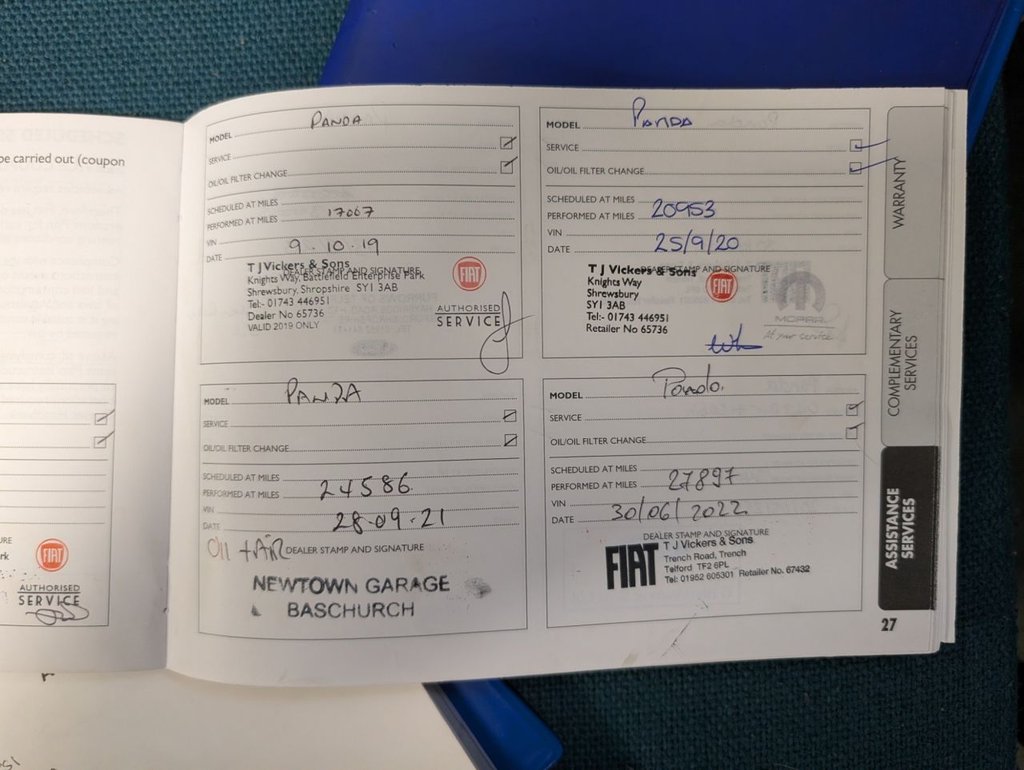 be carried out (coupon
FIAT
AUTHORISED
SERVICE
MODEL PANDA
SERVICE
OIL/OIL FILTER CHANGE
SCHEDULED AT MILES
PERFORMED AT MILES 17067
VIN
DATE 9.10.19
DEALER STAMP AND SIGNATURE
T J Vickers & Sons
Knights Way, Battlefield Enterprise Park
Shrewsbury, Shropshire SY1 3AB
Tel:- 01743 446951
Dealer No 65736
VALID 2019 ONLY
FIAT
AUTHORISED
SERVICE
MODEL PANDA
SERVICE
OIL/OIL FILTER CHANGE
SCHEDULED AT MILES
PERFORMED AT MILES 20953
VIN
DATE 25/9/20
DEALER STAMP AND SIGNATURE
T J Vickers & Sons
Knights Way
Shrewsbury
SY1 3AB
Tel:- 01743 446951
Retailer No 65736
FIAT
MOPAR
At your service
MODEL PANDA
SERVICE
OIL/OIL FILTER CHANGE
SCHEDULED AT MILES
PERFORMED AT MILES 24586
VIN
DATE 28.09.21
Oil + AIR DEALER STAMP AND SIGNATURE
NEWTOWN GARAGE
BASCHURCH
MODEL Panda
SERVICE
OIL/OIL FILTER CHANGE
SCHEDULED AT MILES
PERFORMED AT MILES 27897
VIN
DATE 30/06/2022
DEALER STAMP AND SIGNATURE
FIAT
T J Vickers & Sons
Trench Road, Trench
Telford TF2 6PL
Tel: 01952 605301 Retailer No. 67432
WARRANTY
COMPLEMENTARY
SERVICES
ASSISTANCE
SERVICES
27